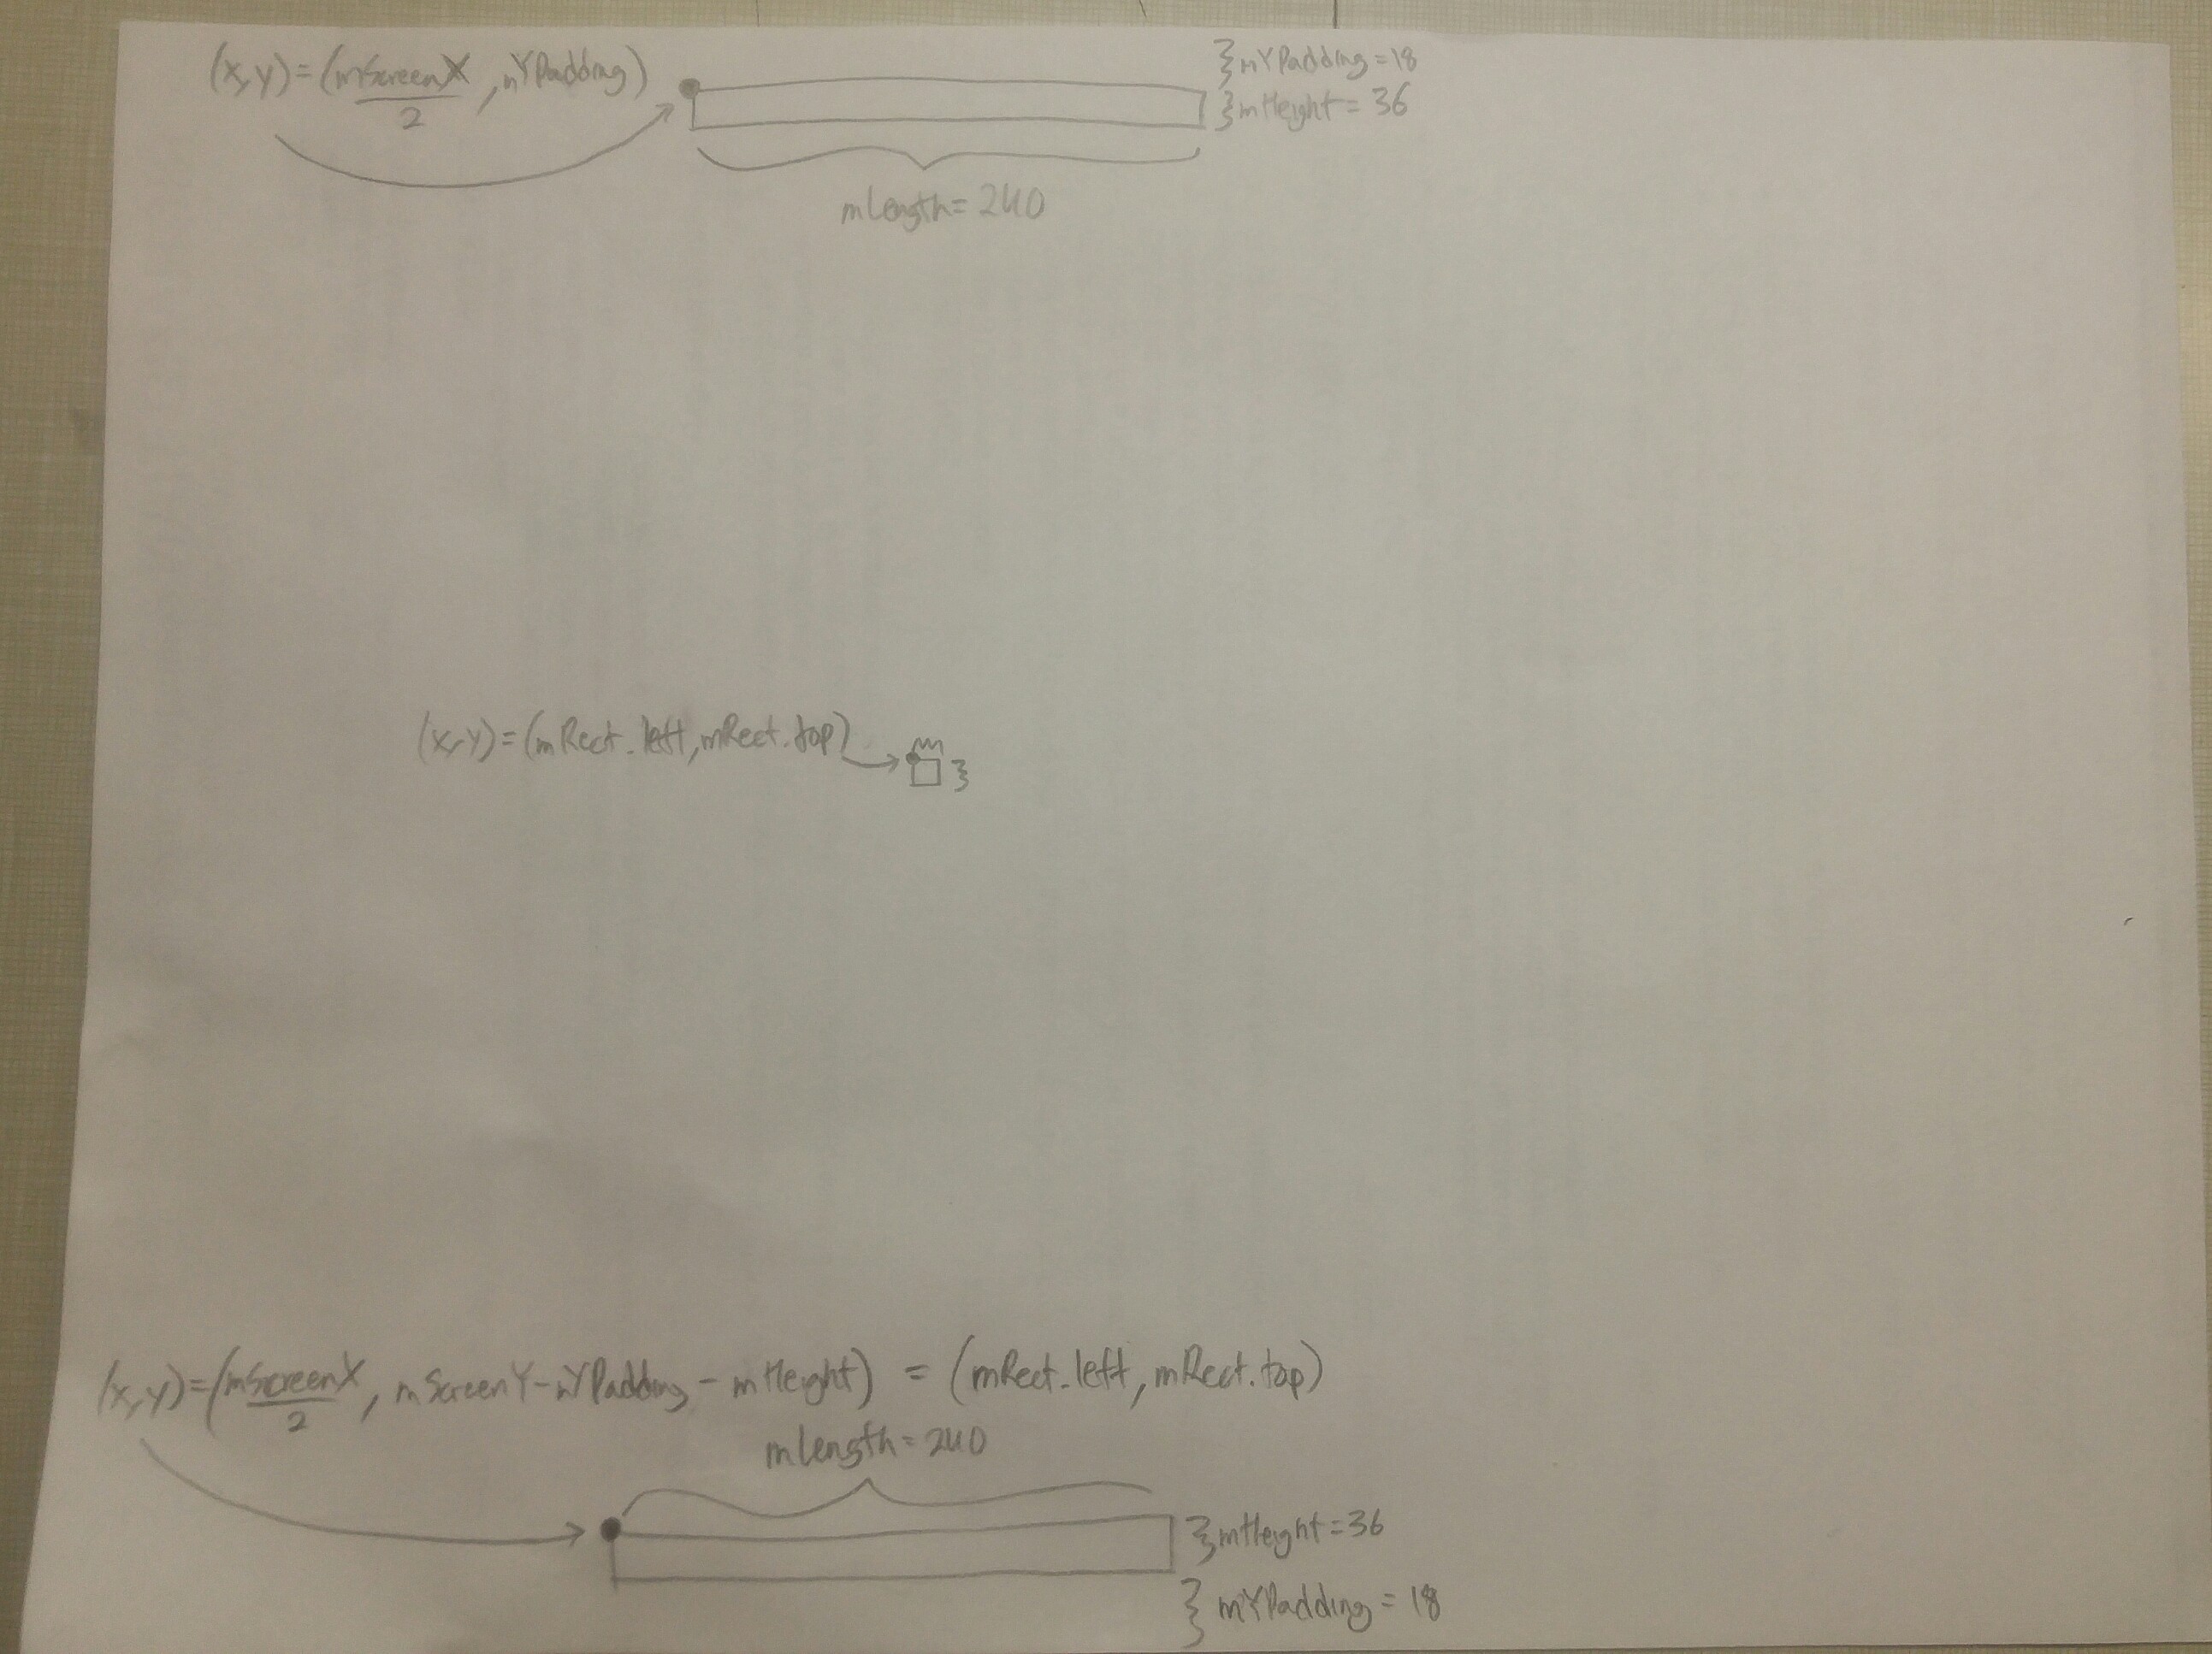 (x,y)=(mScreenX/2, mYPadding)
}mYPadding=18
}mHeight=36
mLength=240
(x,y)=(mRect.left,mRect.top)
(x,y)=(mScreenX/2, mScreenY-mYPadding-mHeight) = (mRect.left, mRect.top)
mLength=240
}mHeight=36
}mYPadding=18